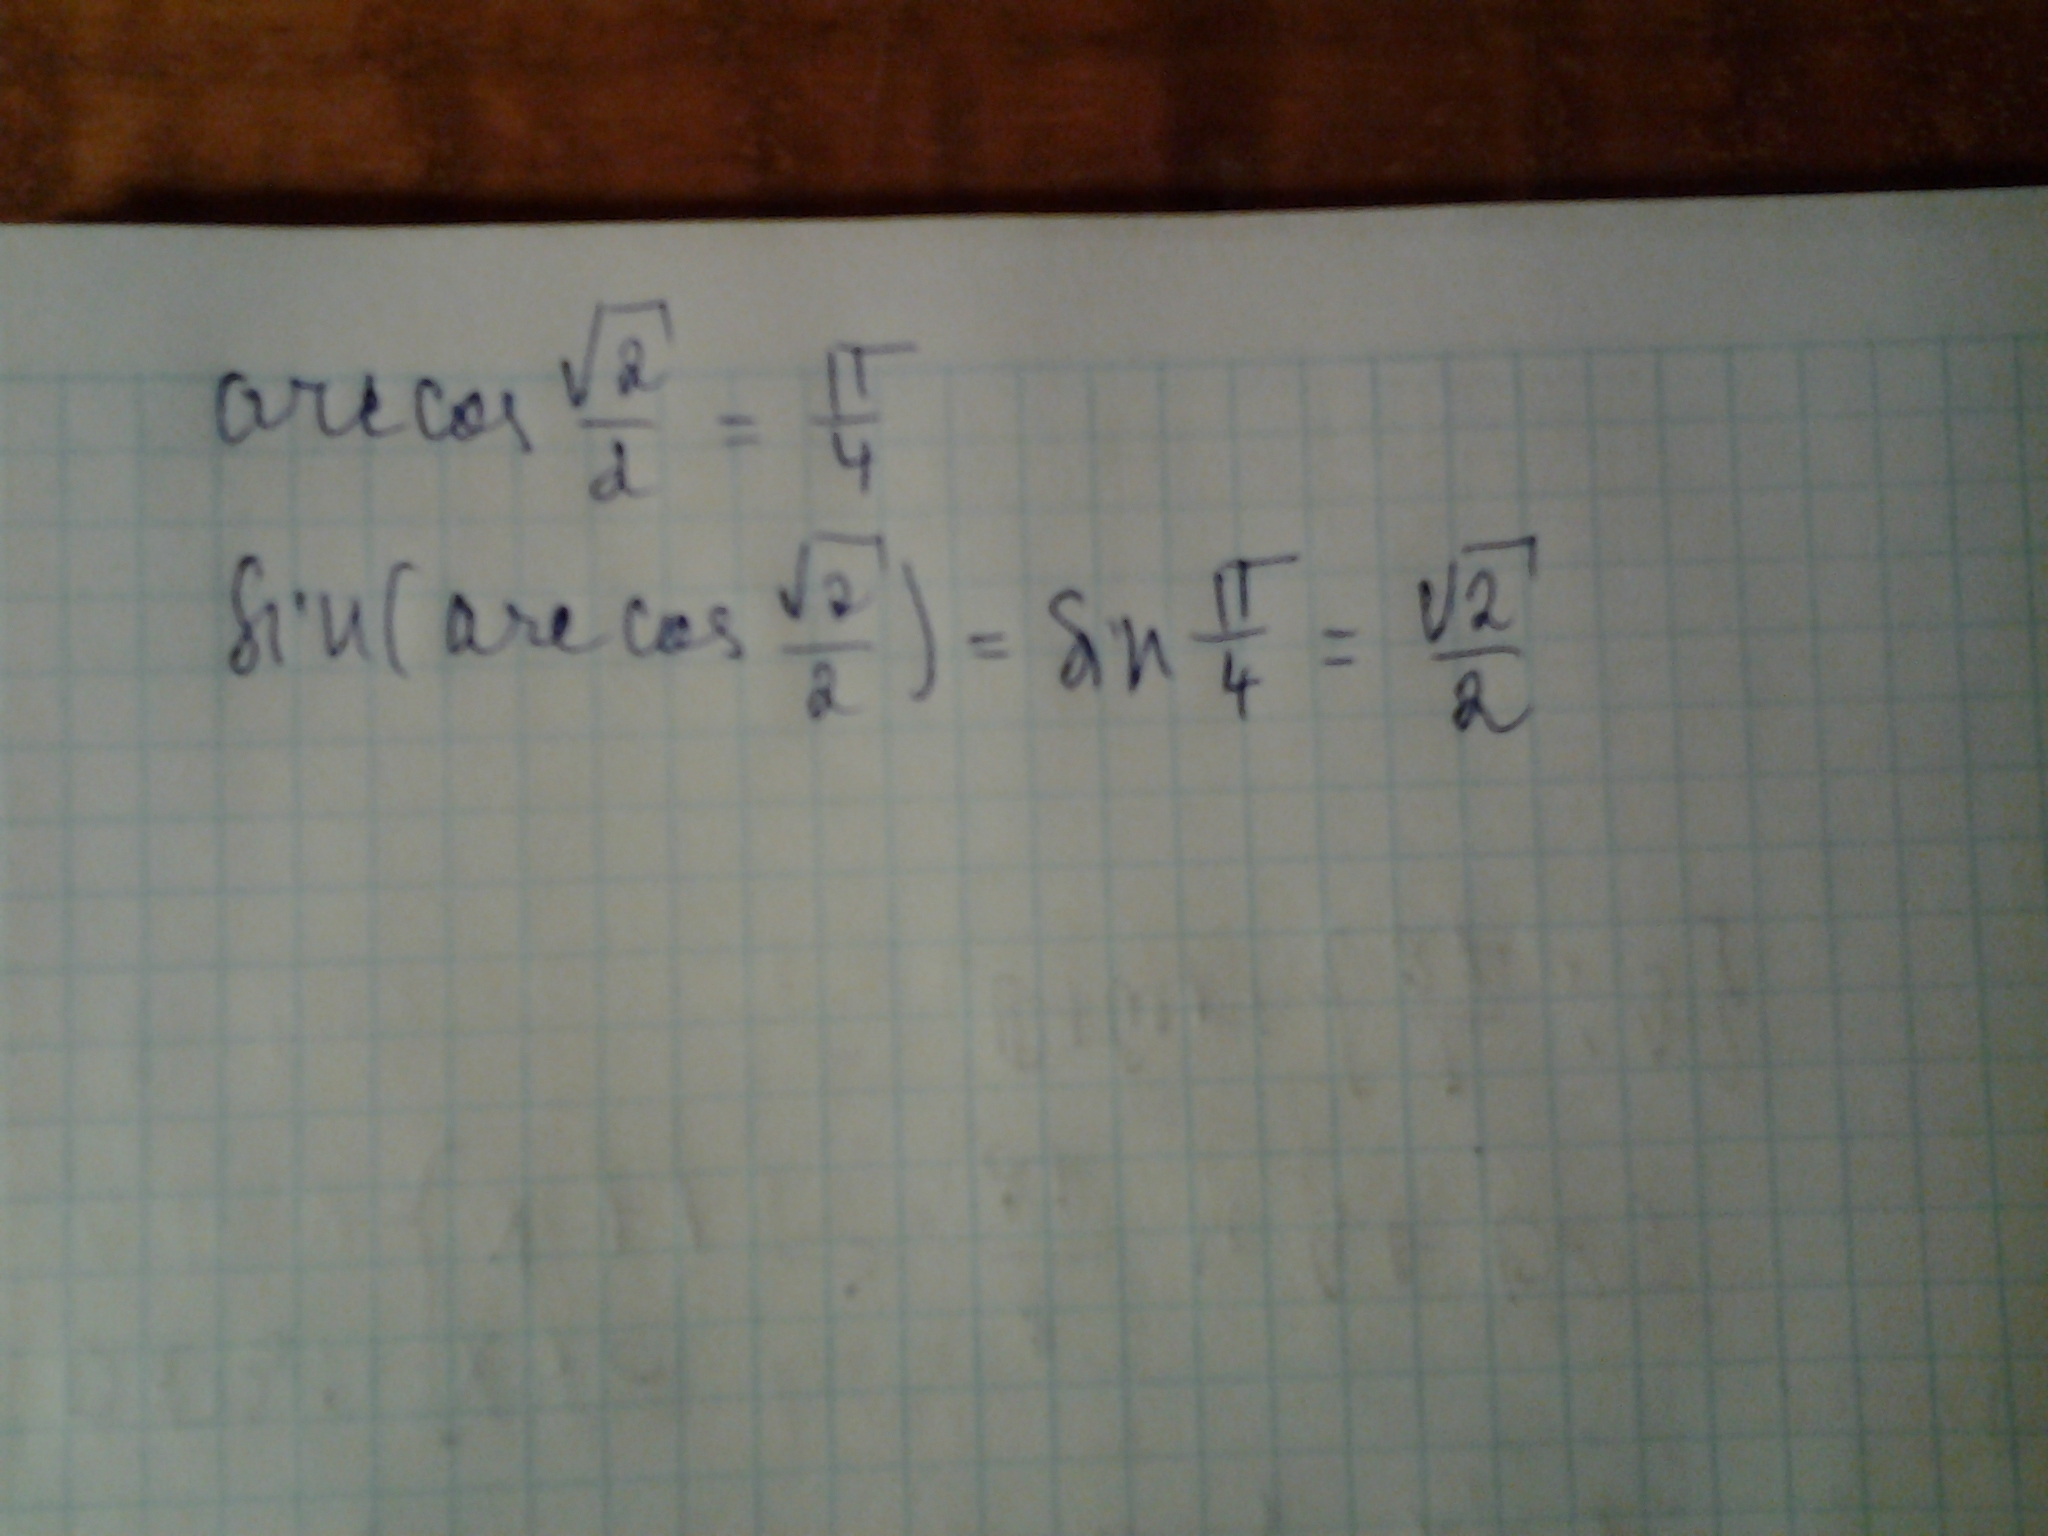 arccos √2/2 = π/4
sin(arccos √2/2) = sin π/4 = √2/2